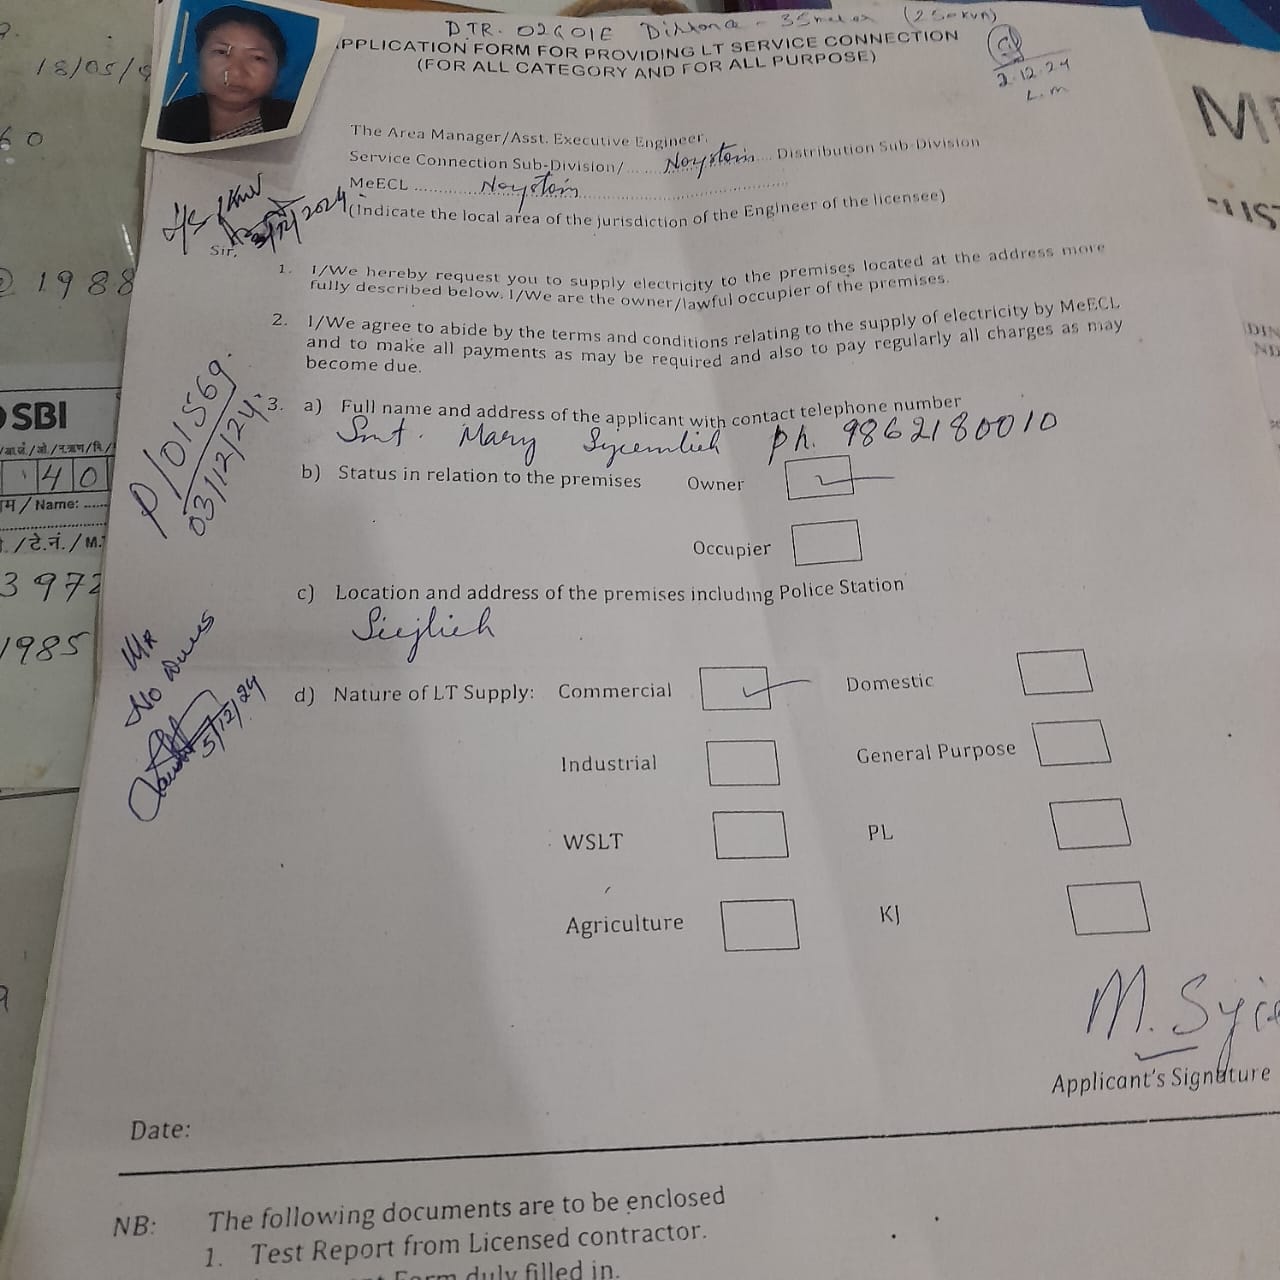 DTR. 02601E - 35meter (250KVA)
APPLICATION FORM FOR PROVIDING LT SERVICE CONNECTION
(FOR ALL CATEGORY AND FOR ALL PURPOSE)
2.12.24
L.m
The Area Manager/Asst. Executive Engineer,
Service Connection Sub-Division/...... Noystoin.... Distribution Sub-Division
MeECL ............. Noystoin
(Indicate the local area of the jurisdiction of the Engineer of the licensee)
3/12/2024
Sir,
1. I/We hereby request you to supply electricity to the premises located at the address more
fully described below. I/We are the owner/lawful occupier of the premises.
2. I/We agree to abide by the terms and conditions relating to the supply of electricity by MeECL
and to make all payments as may be required and also to pay regularly all charges as may
become due.
P/01569
03/12/24
3. a) Full name and address of the applicant with contact telephone number
Smt. Mary Syiemlieh Ph. 9862180010
b) Status in relation to the premises Owner
Occupier
c) Location and address of the premises including Police Station
Siejlieh
No Dues
5/12/24
d) Nature of LT Supply: Commercial Domestic
Industrial General Purpose
WSLT PL
Agriculture KJ
M. Syie
Applicant's Signature
Date:
NB: The following documents are to be enclosed
1. Test Report from Licensed contractor.
Form duly filled in.
18/05/
60
1988
SBI
40
/ Name: ......
./टे.नं./M.
3972
1985